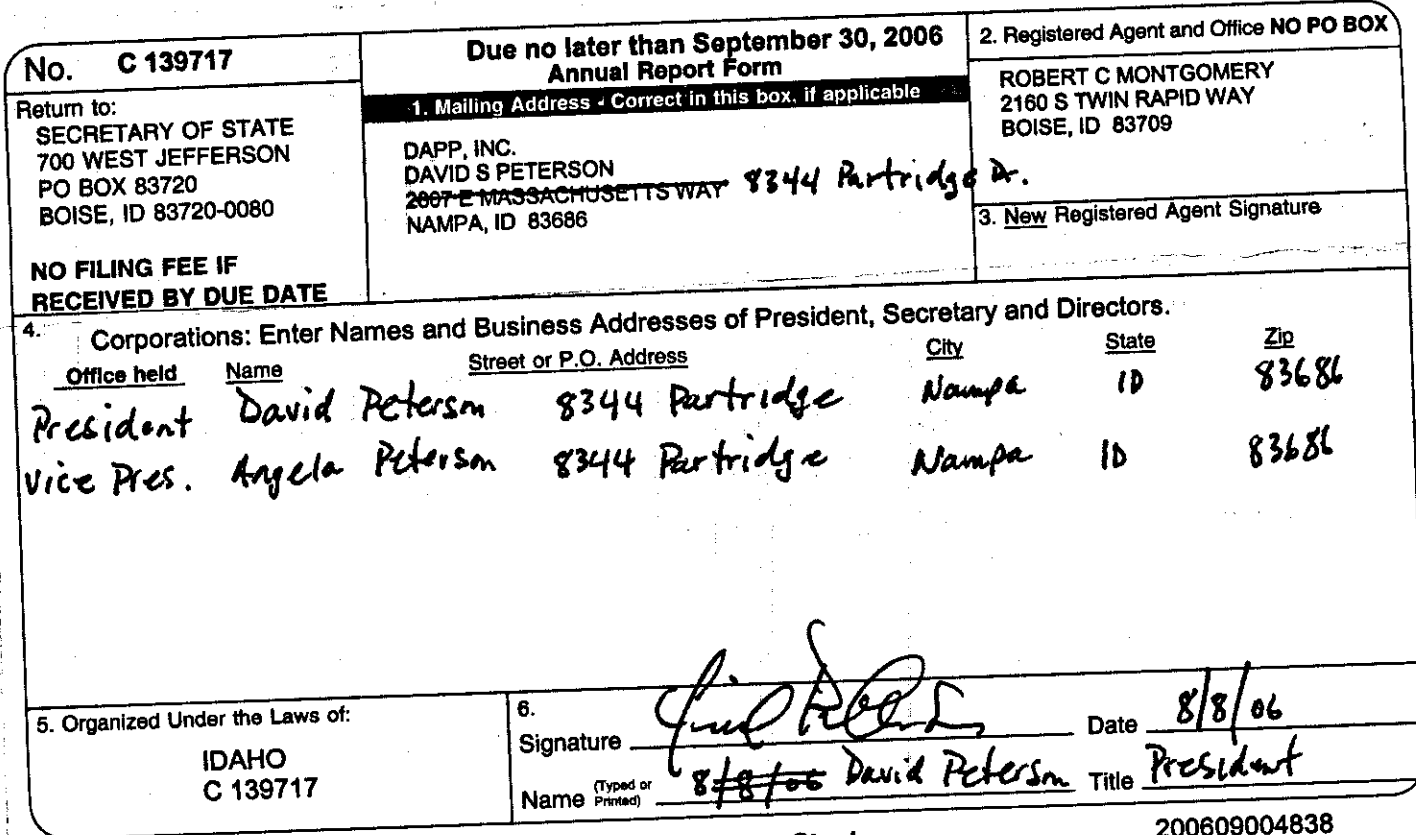 No. C 139717
Return to:
SECRETARY OF STATE
700 WEST JEFFERSON
PO BOX 83720
BOISE, ID 83720-0080
NO FILING FEE IF
RECEIVED BY DUE DATE
Due no later than September 30, 2006
Annual Report Form
1. Mailing Address - Correct in this box, if applicable
DAPP, INC.
DAVID S PETERSON
2007 E MASSACHUSETTS WAY 8344 Partridge Dr.
NAMPA, ID 83686
2. Registered Agent and Office NO PO BOX
ROBERT C MONTGOMERY
2160 S TWIN RAPID WAY
BOISE, ID 83709
3. New Registered Agent Signature
4. Corporations: Enter Names and Business Addresses of President, Secretary and Directors.
Office held Name Street or P.O. Address City State Zip
President David Peterson 8344 Partridge Nampa ID 83686
Vice Pres. Angela Peterson 8344 Partridge Nampa ID 83686
5. Organized Under the Laws of:
IDAHO
C 139717
6.
Signature Date 8/8/06
Name (Typed or Printed) 8/8/06 David Peterson Title President
200609004838